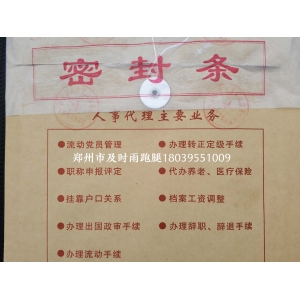 密封条
人事代理主要业务
●流动党员管理 ●办理转正定级手续
郑州市及时雨跑腿18039551009
●职称申报评定 ●代办养老、医疗保险
●挂靠户口关系 ●档案工资调整
●办理出国政审手续 ●办理辞职、辞退手续
●办理流动手续